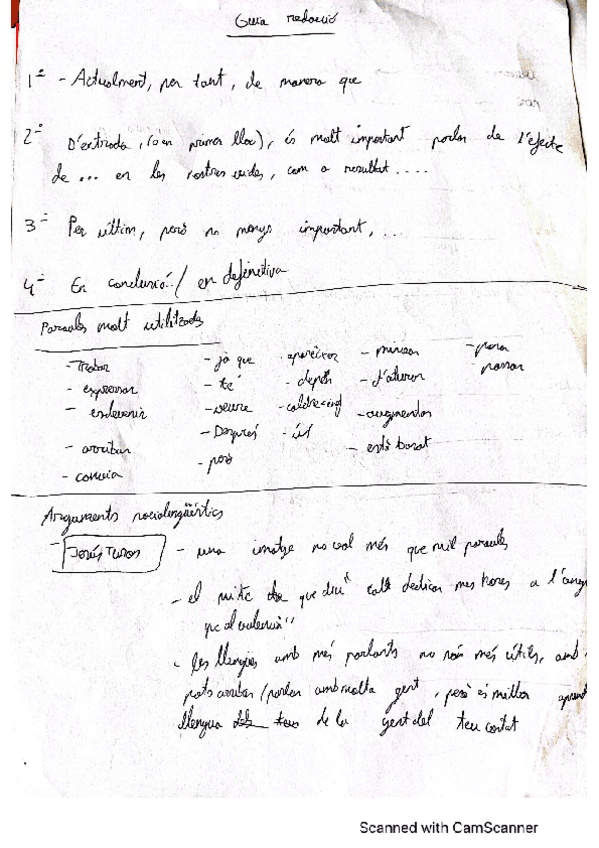 Guia redacció
1º - Actualment, per tant, de manera que
2º D'entrada, (o en primer lloc), és molt important parlar de l'efecte
de ... en les nostres vides, com a resultat ....
3º Per últim, però no menys important, ...
4º En conclusió../ en definitiva
Paraules molt utilitzades
- Trobar - ja que · aparèixer - pensar
- expressar - té - depén - d'aturar - passar
- esdevenir - veure - augmentar
- arribar - Després - út - està basat
- canvia - però
Arguments sociolingüístics
- Jesús Tuson - una imatge no val més que mil paraules
- el mite de que diu "cal dedicar mes hores a l'ang
que al valencià"
- les llengües amb més parlants no són més útils, amb
pots arribar/parlar amb molta gent, però és millor
llengua de la gent del teu costat
Scanned with CamScanner